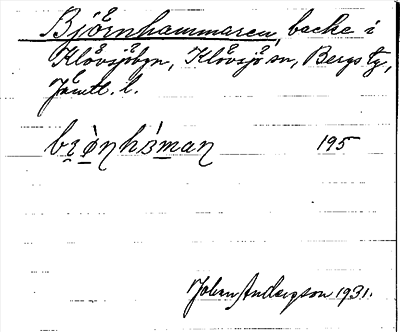 Björnhammaren, backe i
Klövsjöbyn, Klövsjö sn, Bergs tg,
Jämtl. l.
195
John Anderson 1931.